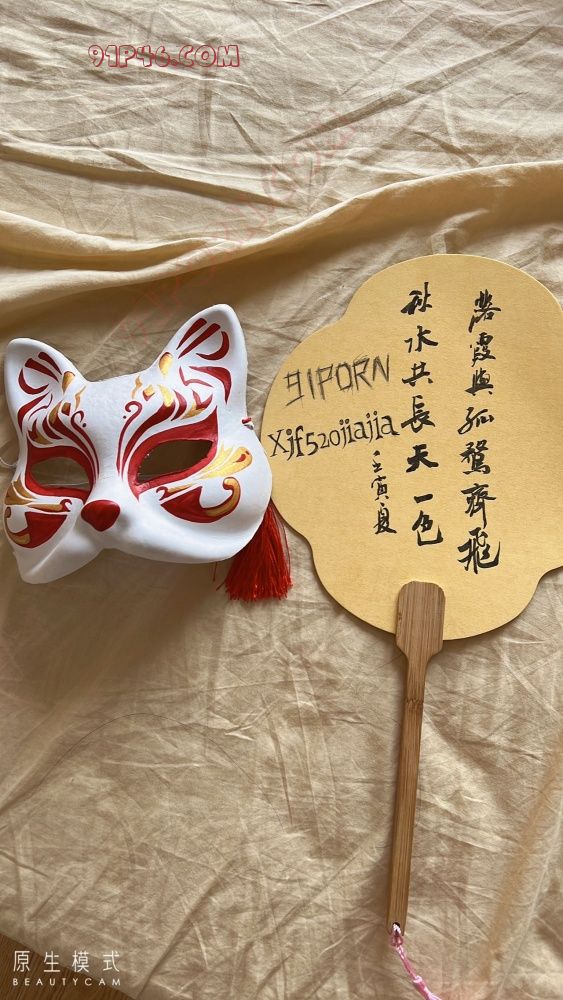 91P46.COM
落霞與孤鶩齊飛
秋水共長天一色
壬寅夏
91PORN
Xjf520jiajia
原生模式
BEAUTYCAM